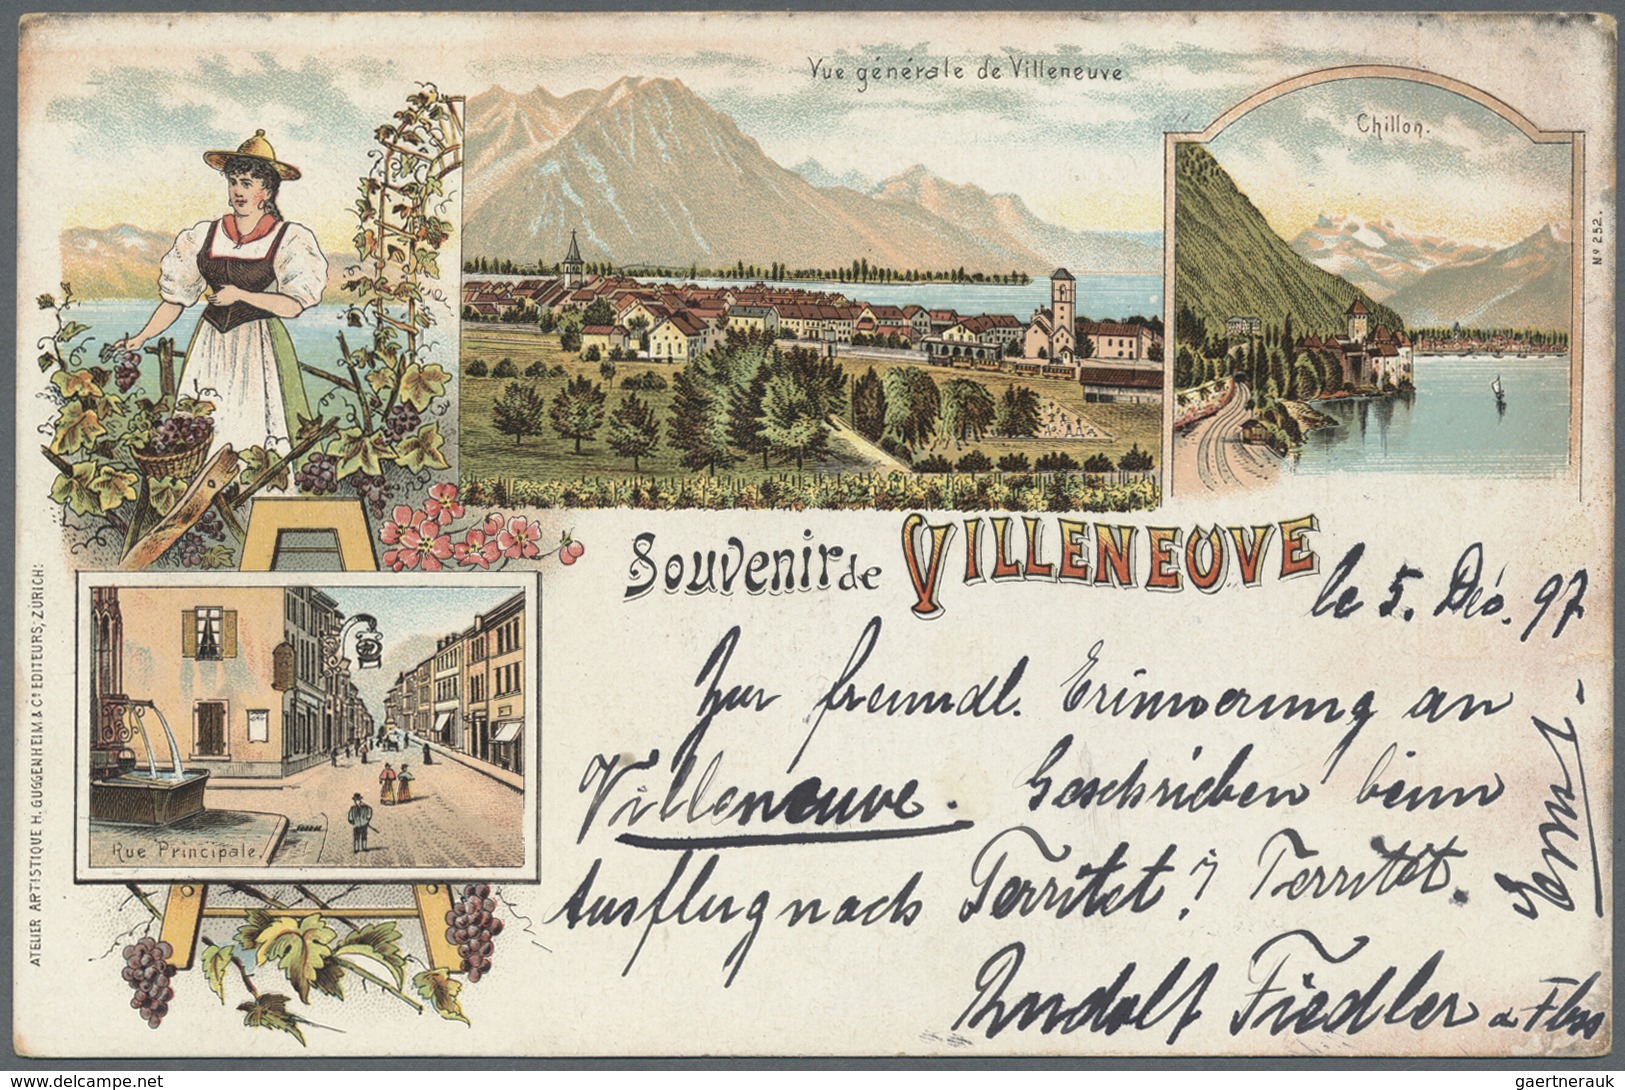 Vue générale de Villeneuve
Chillon.
Nº 252.
Souvenir de VILLENEUVE
le 5. Déc. 97.
Zur freundl. Erinnerung an
Villeneuve. Geschrieben beim
Ausflug nach Territet? Territet.
Rudolf Fiedler
Rue Principale.
ATELIER ARTISTIQUE H. GUGGENHEIM & Cº EDITEURS, ZÜRICH.
delcampe.net
gaertnerauk